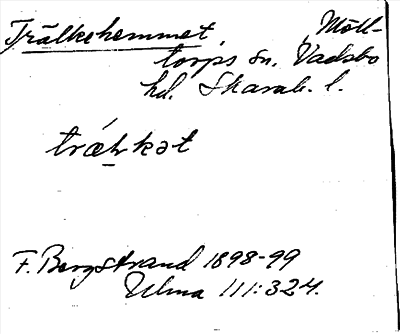 Trälkehemmet, Mölltorps sn. Vadsbo
hd. Skarab. l.
tráƚkət
F. Bergstrand 1898-99
Ulma 111:324.